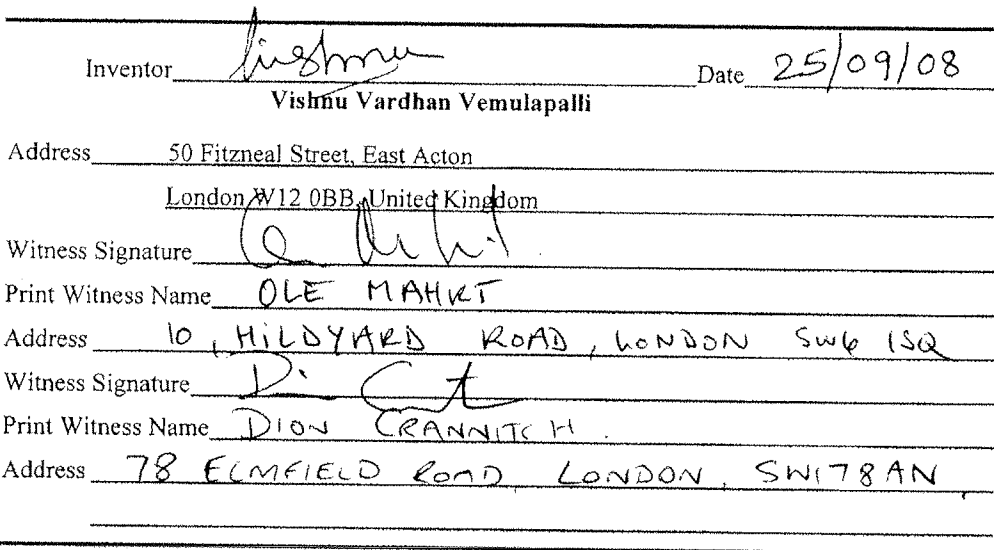 Inventor Vishnu Date 25/09/08
Vishnu Vardhan Vemulapalli
Address 50 Fitzneal Street, East Acton
London W12 0BB, United Kingdom
Witness Signature
Print Witness Name OLE MAHRT
Address 10, HILDYARD ROAD, LONDON SW6 1SQ
Witness Signature
Print Witness Name DION CRANNITCH.
Address 78 ELMFIELD ROAD, LONDON, SW17 8AN,